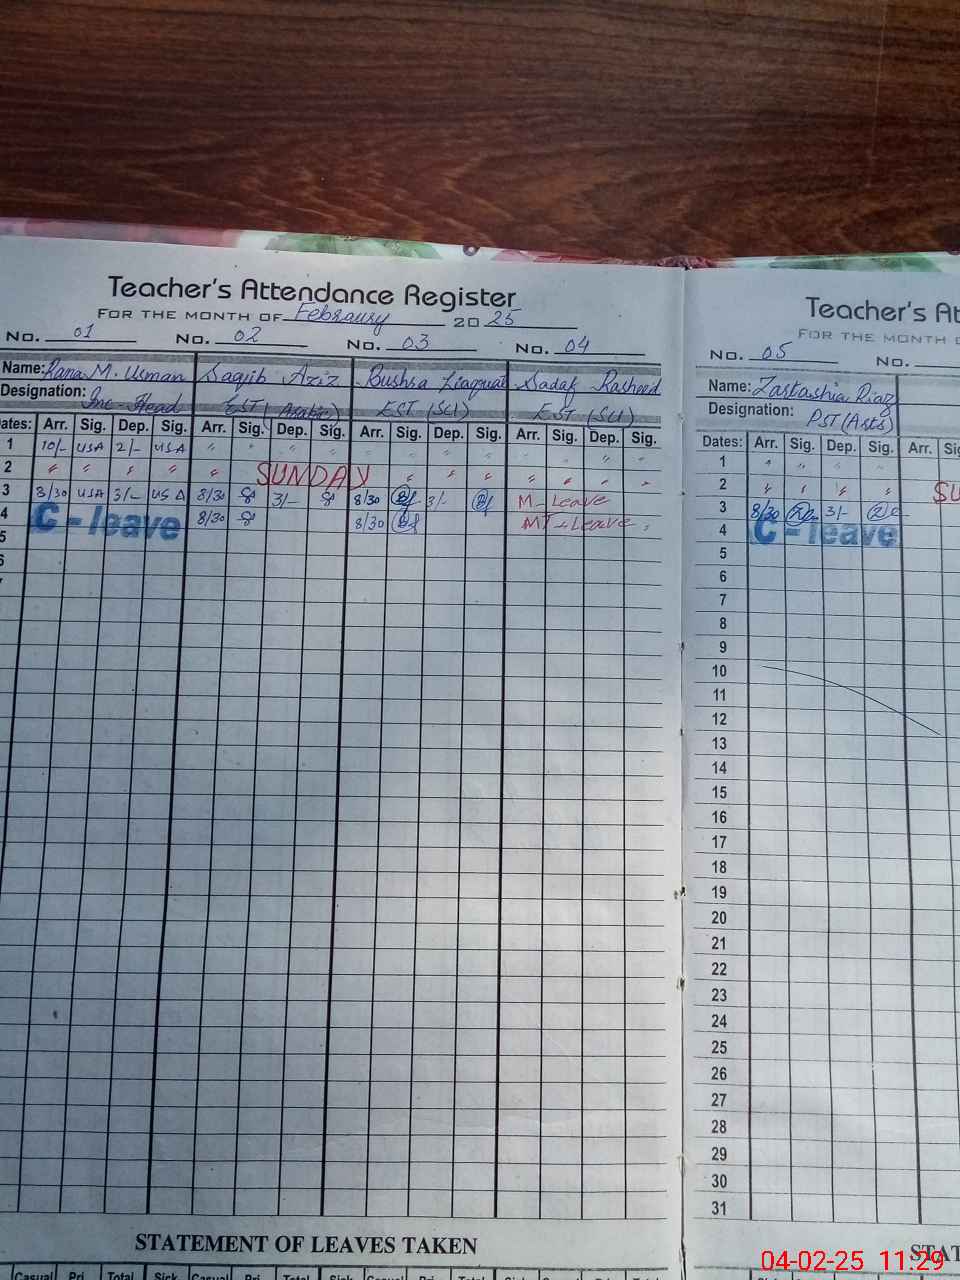 Teacher's Attendance Register
FOR THE MONTH OF Febraury 2025
No. 01 No. 02 No. 03 No. 04
Name: Rana M. Usman Saqib Aziz Bushra Liaquat Sadaf Rasheed
Designation: Inc-Head EST (Arabic) EST (Sci) EST (Sci)
Dates: Arr. Sig. Dep. Sig. Arr. Sig. Dep. Sig. Arr. Sig. Dep. Sig. Arr. Sig. Dep. Sig.
1 10/- USA 2/- USA " " " " " " " " " " " "
2 " " " " " SUNDAY " " " " " " "
3 8/30 USA 3/- USA 8/30 3/- 8/30 3/- M-Leave
4 C - leave 8/30 8/30 MT-Leave
5
6
STATEMENT OF LEAVES TAKEN
Casual Pri. Total Sick Casual Pri. Total Sick Casual
Teacher's At
FOR THE MONTH O
No. 05 No.
Name: Zartashia Riaz
Designation: PST (Arts)
Dates: Arr. Sig. Dep. Sig. Arr. Sig
1 " " " "
2 " " " " SU
3 8/30 3/-
4 C - leave
5
6
7
8
9
10
11
12
13
14
15
16
17
18
19
20
21
22
23
24
25
26
27
28
29
30
31
STAT
04-02-25 11:29